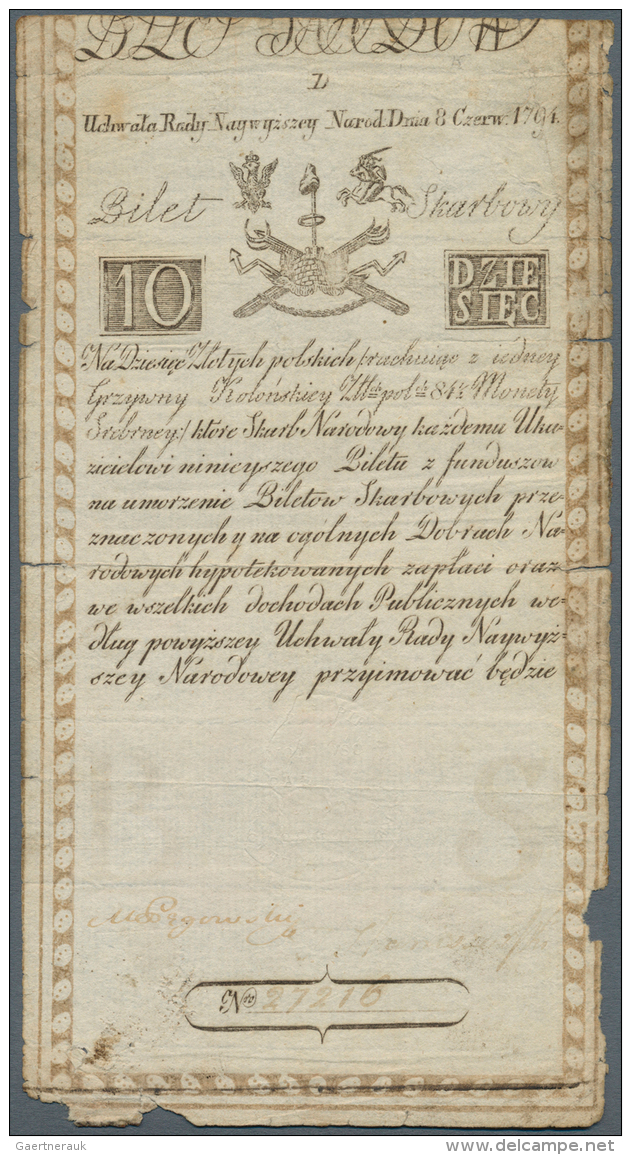 D
Uchwała Rady Naywyższey Narod. Dnia 8 Czerw. 1794.
Bilet Skarbowy
10
DZIE
SIĘC
Na Dziesięć Złotych polskich /:rachuiąc z iedney
Grzywny Kolońskiey Złł:ch pol:ch 84½ Monety
Srebrney:/ które Skarb Narodowy każdemu Uka-
zicielowi ninieyszego Biletu z funduszow
na umorzenie Biletow Skarbowych prze-
znaczonych y na ogólnych Dobrach Na-
rodowych hypotekowanych zapłaci oraz
we wszelkich dochodach Publicznych we-
dług powyższey Uchwały Rady Naywyż-
szey Narodowey przyimować będzie
No 27216
Gaertnerauk
www.delcampe.net